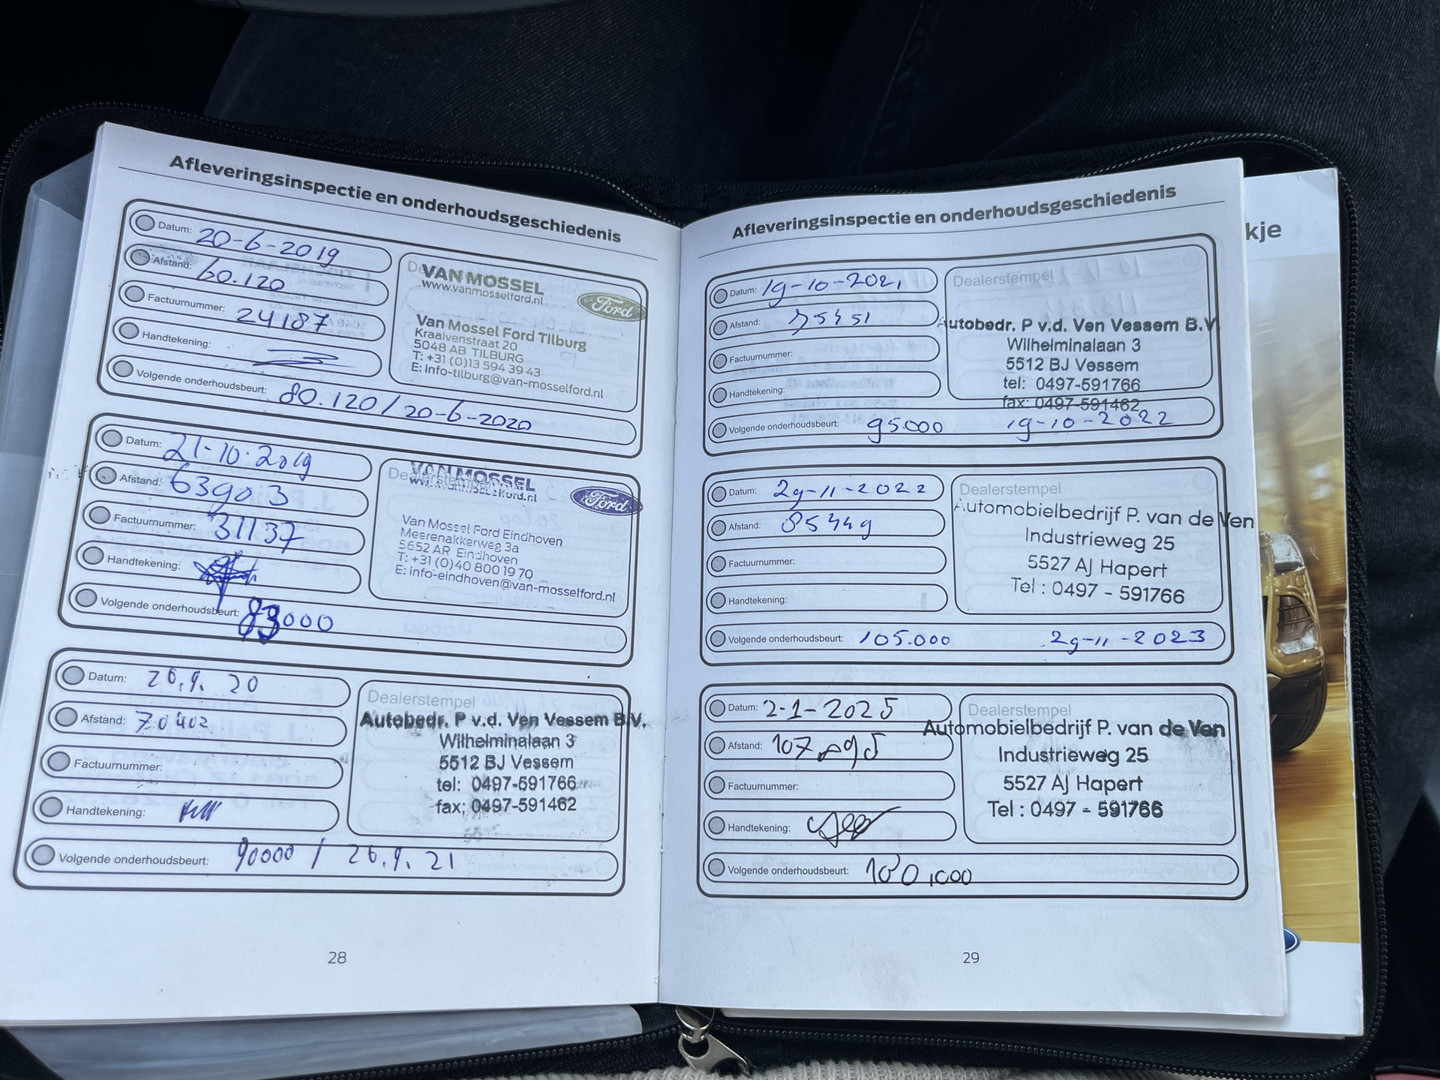 Afleveringsinspectie en onderhoudsgeschiedenis
Datum: 20-6-2019
Afstand: 60.120
Factuurnummer: 24187
Handtekening:
Volgende onderhoudsbeurt: 80.120 / 20-6-2020
VAN MOSSEL
www.vanmosselford.nl
Ford
Van Mossel Ford Tilburg
Kraaivenstraat 20
5048 AB TILBURG
T: +31 (0)13 594 39 43
E: Info-tilburg@van-mosselford.nl
Datum: 21-10-2019
Afstand: 63903
Factuurnummer: 31137
Handtekening:
Volgende onderhoudsbeurt: 83000
VAN MOSSEL
www.vanmosselford.nl
Ford
Van Mossel Ford Eindhoven
Meerenakkerweg 3a
5652 AR Eindhoven
T: +31 (0)40 800 19 70
E: info-eindhoven@van-mosselford.nl
Datum: 26.9.20
Afstand: 70402
Factuurnummer:
Handtekening:
Volgende onderhoudsbeurt: 90000 / 26.9.21
Dealerstempel
Autobedr. P v.d. Ven Vessem B.V.
Wilhelminalaan 3
5512 BJ Vessem
tel: 0497-591766
fax: 0497-591462
28
Afleveringsinspectie en onderhoudsgeschiedenis
Datum: 19-10-2021
Afstand: 75451
Factuurnummer:
Handtekening:
Volgende onderhoudsbeurt: 95000 19-10-2022
Dealerstempel
Autobedr. P v.d. Ven Vessem B.V.
Wilhelminalaan 3
5512 BJ Vessem
tel: 0497-591766
fax: 0497-591462
Datum: 29-11-2022
Afstand: 85449
Factuurnummer:
Handtekening:
Volgende onderhoudsbeurt: 105.000 29-11-2023
Dealerstempel
Automobielbedrijf P. van de Ven
Industrieweg 25
5527 AJ Hapert
Tel : 0497 - 591766
Datum: 2-1-2025
Afstand:
Factuurnummer:
Handtekening:
Volgende onderhoudsbeurt:
Dealerstempel
Automobielbedrijf P. van de Ven
Industrieweg 25
5527 AJ Hapert
Tel : 0497 - 591766
29
kje